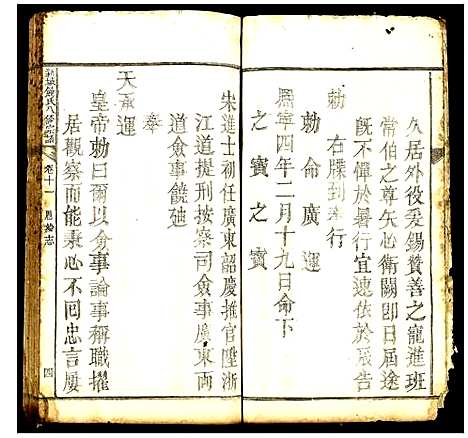 久居外役爰錫贊善之寵進班
常伯之尊矢心衛闕即日屆途
旣不憚於暑行宜速依於辰告
右牒到奉行
勅
勅命廣運
熙寧四年二月十九日命下
之寶之寶
朱進士初任廣東韶慶推官陞浙
江道提刑按察司僉事廣東兩
道僉事饒廸
奉
天承運
皇帝勅曰爾以僉事論事稱職擢
居觀察而能秉心不囘忠言屢
卷十一
恩綸志
四